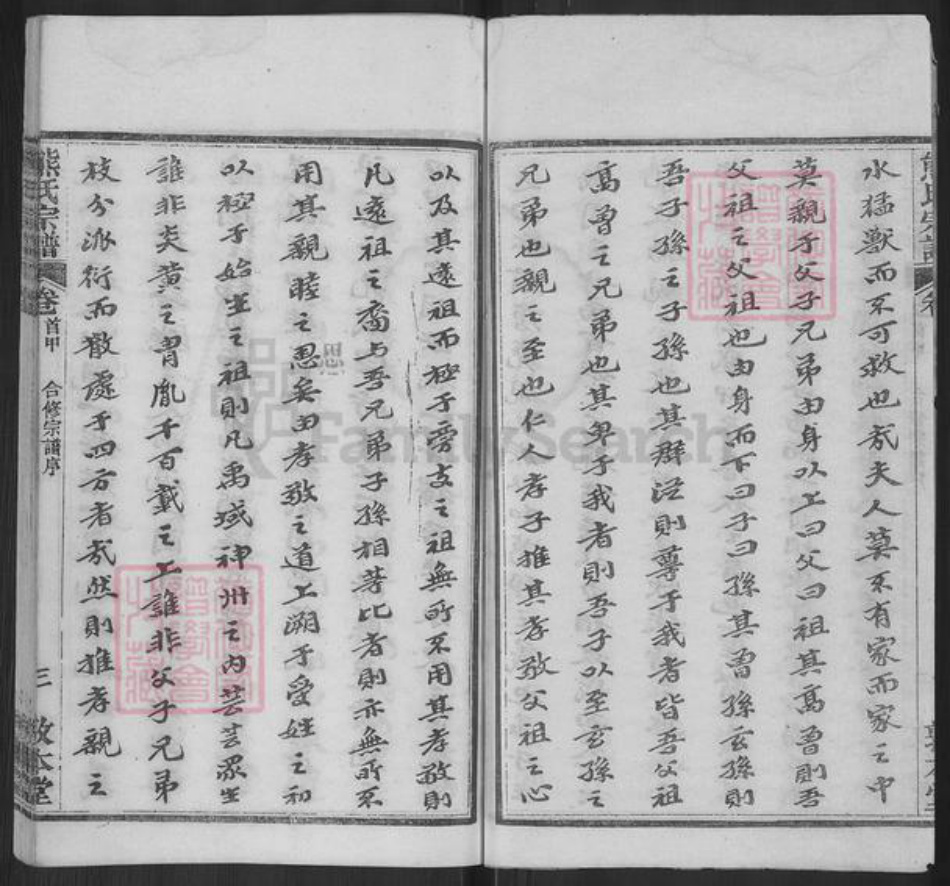 水猛獸而不可救也哉夫人莫不有家而家之中
莫親于父子兄弟由身以上曰父曰祖其高曾則吾
父祖之父祖也由身而下曰子曰孫其曾孫玄孫則
吾子孫之子孫也其群從則尊于我者皆吾父祖
高曾之兄弟也其卑于我者則吾子以至玄孫之
兄弟也親之至也仁人孝子推其孝敬父祖之心
以及其遠祖而極于旁支之祖無所不用其孝敬則
凡遠祖之裔与吾兄弟子孫相等比者則亦無所不
用其親睦之恩矣由孝敬之道上溯于受姓之初
以極于始生之祖則凡禹域神州之内芸芸眾生
誰非炎黄之胄胤千百載之上誰非父子兄弟
枝分派衍而散處于四方者哉然則推孝親之
熊氏宗譜
卷首甲 合修宗譜序
三 敦本堂
FamilySearch